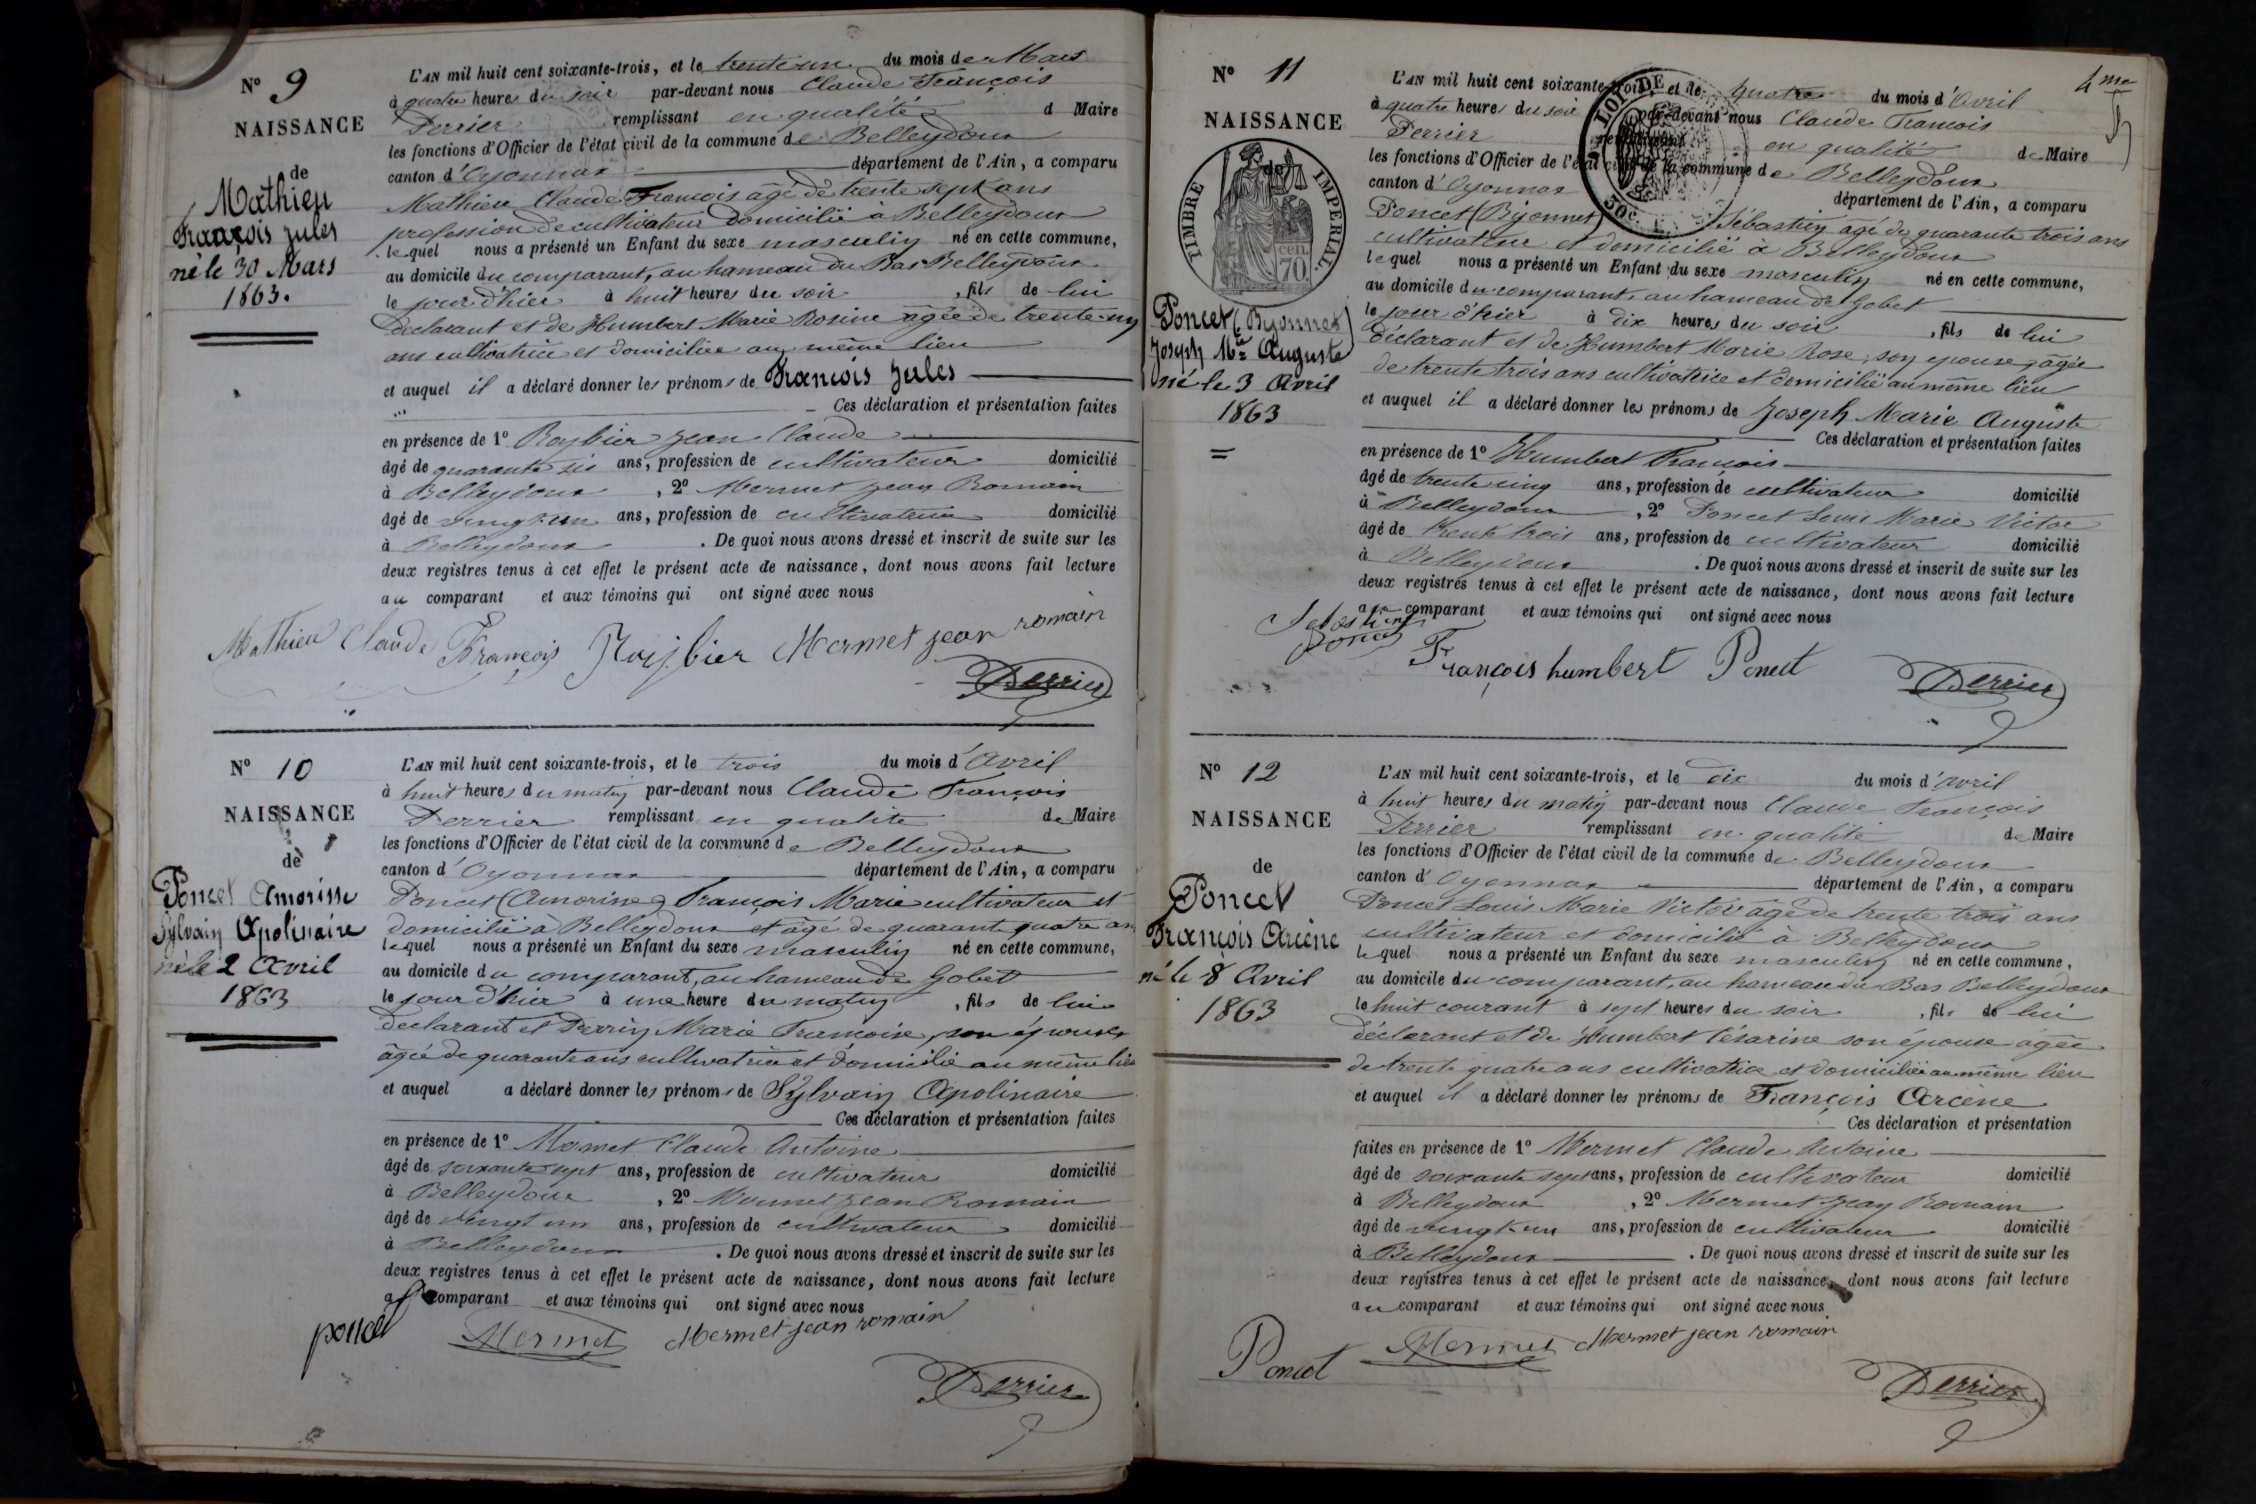 N° 9
NAISSANCE
de
Mathieu
François Jules
né le 30 Mars
1863.
L'AN mil huit cent soixante-trois, et le trente un du mois de Mars
à quatre heures du soir par-devant nous Claude François
Perrier remplissant en qualité d Maire
les fonctions d'Officier de l'état civil de la commune de Belleydoux
canton d'Oyonnax département de l'Ain, a comparu
Mathieu Claude François agé de trente sept ans
profession de cultivateur domicilié à Belleydoux
lequel nous a présenté un Enfant du sexe masculin né en cette commune,
au domicile du comparant, au hameau du Bas Belleydoux
le jour d'hier à huit heures du soir, fils de lui
déclarant et de Humbert Marie Rosine agée de trente un
ans cultivatrice et domiciliée au même lieu
et auquel il a déclaré donner les prénoms de François Jules
Ces déclaration et présentation faites
en présence de 1° Roybier Jean Claude
âgé de quarante six ans, profession de cultivateur domicilié
à Belleydoux, 2° Mermet Jean Romain
âgé de vingt un ans, profession de cultivateur domicilié
à Belleydoux. De quoi nous avons dressé et inscrit de suite sur les
deux registres tenus à cet effet le présent acte de naissance, dont nous avons fait lecture
au comparant et aux témoins qui ont signé avec nous
Mathieu Claude François Roybier Mermet jean romain
Perrier
N° 10
NAISSANCE
de
Poncet Amorine
Sylvain Apolinaire
né le 2 Avril
1863
L'AN mil huit cent soixante-trois, et le trois du mois d'Avril
à huit heures du matin par-devant nous Claude François
Perrier remplissant en qualité de Maire
les fonctions d'Officier de l'état civil de la commune de Belleydoux
canton d'Oyonnax département de l'Ain, a comparu
Poncet (Amorine) François Marie cultivateur et
domicilié à Belleydoux et agé de quarante quatre ans
lequel nous a présenté un Enfant du sexe masculin né en cette commune,
au domicile du comparant, au hameau de Gobet
le jour d'hier à une heure du matin, fils de lui
déclarant et Perrin Marie Françoise, son épouse
âgée de quarante ans cultivatrice et domicilié au même lieu
et auquel a déclaré donner les prénoms de Sylvain Apolinaire
Ces déclaration et présentation faites
en présence de 1° Mermet Claude Antoine
âgé de soixante sept ans, profession de cultivateur domicilié
à Belleydoux, 2° Mermet Jean Romain
âgé de vingt un ans, profession de cultivateur domicilié
à Belleydoux. De quoi nous avons dressé et inscrit de suite sur les
deux registres tenus à cet effet le présent acte de naissance, dont nous avons fait lecture
au comparant et aux témoins qui ont signé avec nous
poncet Mermet Mermet jean romain
Perrier
4me
N° 11
NAISSANCE
de
TIMBRE IMPERIAL
70 cen
Poncet (Byonnet)
Joseph Mie Auguste
né le 3 Avril
1863
L'AN mil huit cent soixante-trois, et le quatre du mois d'Avril
à quatre heures du soir par-devant nous Claude François
Perrier remplissant en qualité de Maire
les fonctions d'Officier de l'état civil de la commune de Belleydoux
canton d'Oyonnax département de l'Ain, a comparu
Poncet (Byonnet) Sébastien agé de quarante trois ans
cultivateur et domicilié à Belleydoux
lequel nous a présenté un Enfant du sexe masculin né en cette commune,
au domicile du comparant, au hameau de Gobet
le jour d'hier à dix heures du soir, fils de lui
déclarant et de Humbert Marie Rose, son épouse, agée
de trente trois ans cultivatrice et domiciliée au même lieu
et auquel il a déclaré donner les prénoms de Joseph Marie Auguste
Ces déclaration et présentation faites
en présence de 1° Humbert François
âgé de trente cinq ans, profession de cultivateur domicilié
à Belleydoux, 2° Poncet Louis Marie Victor
âgé de trente trois ans, profession de cultivateur domicilié
à Belleydoux. De quoi nous avons dressé et inscrit de suite sur les
deux registres tenus à cet effet le présent acte de naissance, dont nous avons fait lecture
au comparant et aux témoins qui ont signé avec nous
Sebastien poncet
François humbert Poncet
Perrier
N° 12
NAISSANCE
de
Poncet
François Arcène
né le 8 Avril
1863
L'AN mil huit cent soixante-trois, et le dix du mois d'Avril
à huit heures du matin par-devant nous Claude François
Perrier remplissant en qualité de Maire
les fonctions d'Officier de l'état civil de la commune de Belleydoux
canton d'Oyonnax département de l'Ain, a comparu
Poncet Louis Marie Victor agé de trente trois ans
cultivateur et domicilié à Belleydoux
lequel nous a présenté un Enfant du sexe masculin né en cette commune,
au domicile du comparant, au hameau du Bas Belleydoux
le huit courant à sept heures du soir, fils de lui
déclarant et de Humbert Césarine son épouse agée
de trente quatre ans cultivatrice et domiciliée au même lieu
et auquel il a déclaré donner les prénoms de François Arcène
Ces déclaration et présentation
faites en présence de 1° Mermet Claude Antoine
âgé de soixante sept ans, profession de cultivateur domicilié
à Belleydoux, 2° Mermet Jean Romain
âgé de vingt un ans, profession de cultivateur domicilié
à Belleydoux. De quoi nous avons dressé et inscrit de suite sur les
deux registres tenus à cet effet le présent acte de naissance, dont nous avons fait lecture
au comparant et aux témoins qui ont signé avec nous
Poncet Mermet Mermet jean romain
Perrier